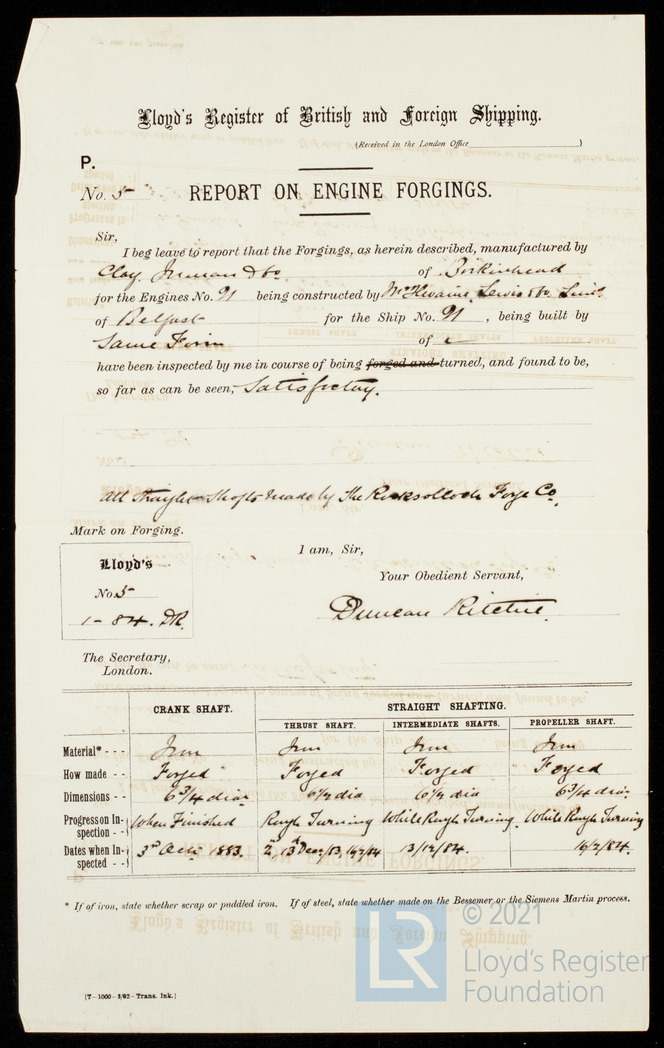 Lloyd's Register of British and Foreign Shipping.
(Received in the London Office )
P.
No. 5 REPORT ON ENGINE FORGINGS.
Sir,
I beg leave to report that the Forgings, as herein described, manufactured by
Clay Inman & Co of Birkinhead
for the Engines No. 91 being constructed by McIlwaine Lewis & Co
of Belfast for the Ship No. 91, being built by
Same Firm of
have been inspected by me in course of being forged and turned, and found to be,
so far as can be seen, Satisfactory.
All Straight Shafts made by the Forge Co.
Mark on Forging.
Lloyd's
No. 5
1-84. DR.
I am, Sir,
Your Obedient Servant,
Duncan Ritchie
The Secretary,
London.
CRANK SHAFT. STRAIGHT SHAFTING.
THRUST SHAFT. INTERMEDIATE SHAFTS. PROPELLER SHAFT.
Material* Iron Iron Iron Iron
How made Forged Forged Forged Forged
Dimensions 6 3/4 dia 6 1/2 dia 6 1/2 dia 6 3/4 dia
Progress on Inspection When Finished Rough Turning While Rough Turning. While Rough Turning
Dates when Inspected 3rd 1883. 13 Dec/83
* If of iron, state whether scrap or puddled iron. If of steel, state whether made on the Bessemer or the Siemens Martin process.
[T-1000-3/82-Trans. Ink.]
LR © 2021
Lloyd's Register
Foundation